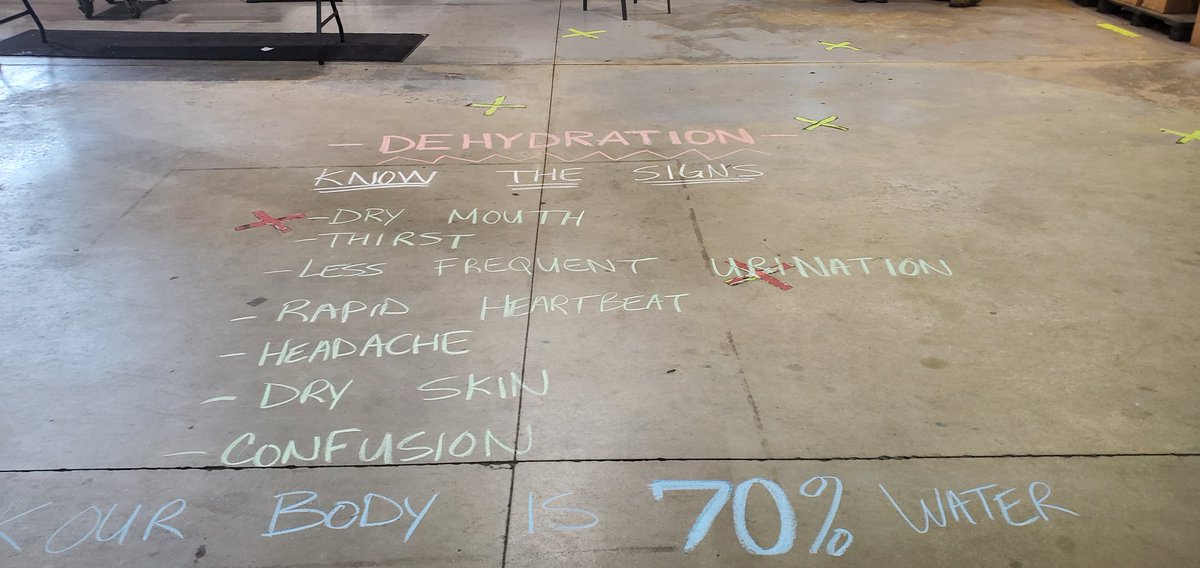 - DEHYDRATION -
KNOW THE SIGNS
- DRY MOUTH
- THIRST
- LESS FREQUENT URINATION
- RAPID HEARTBEAT
- HEADACHE
- DRY SKIN
- CONFUSION
YOUR BODY IS 70% WATER